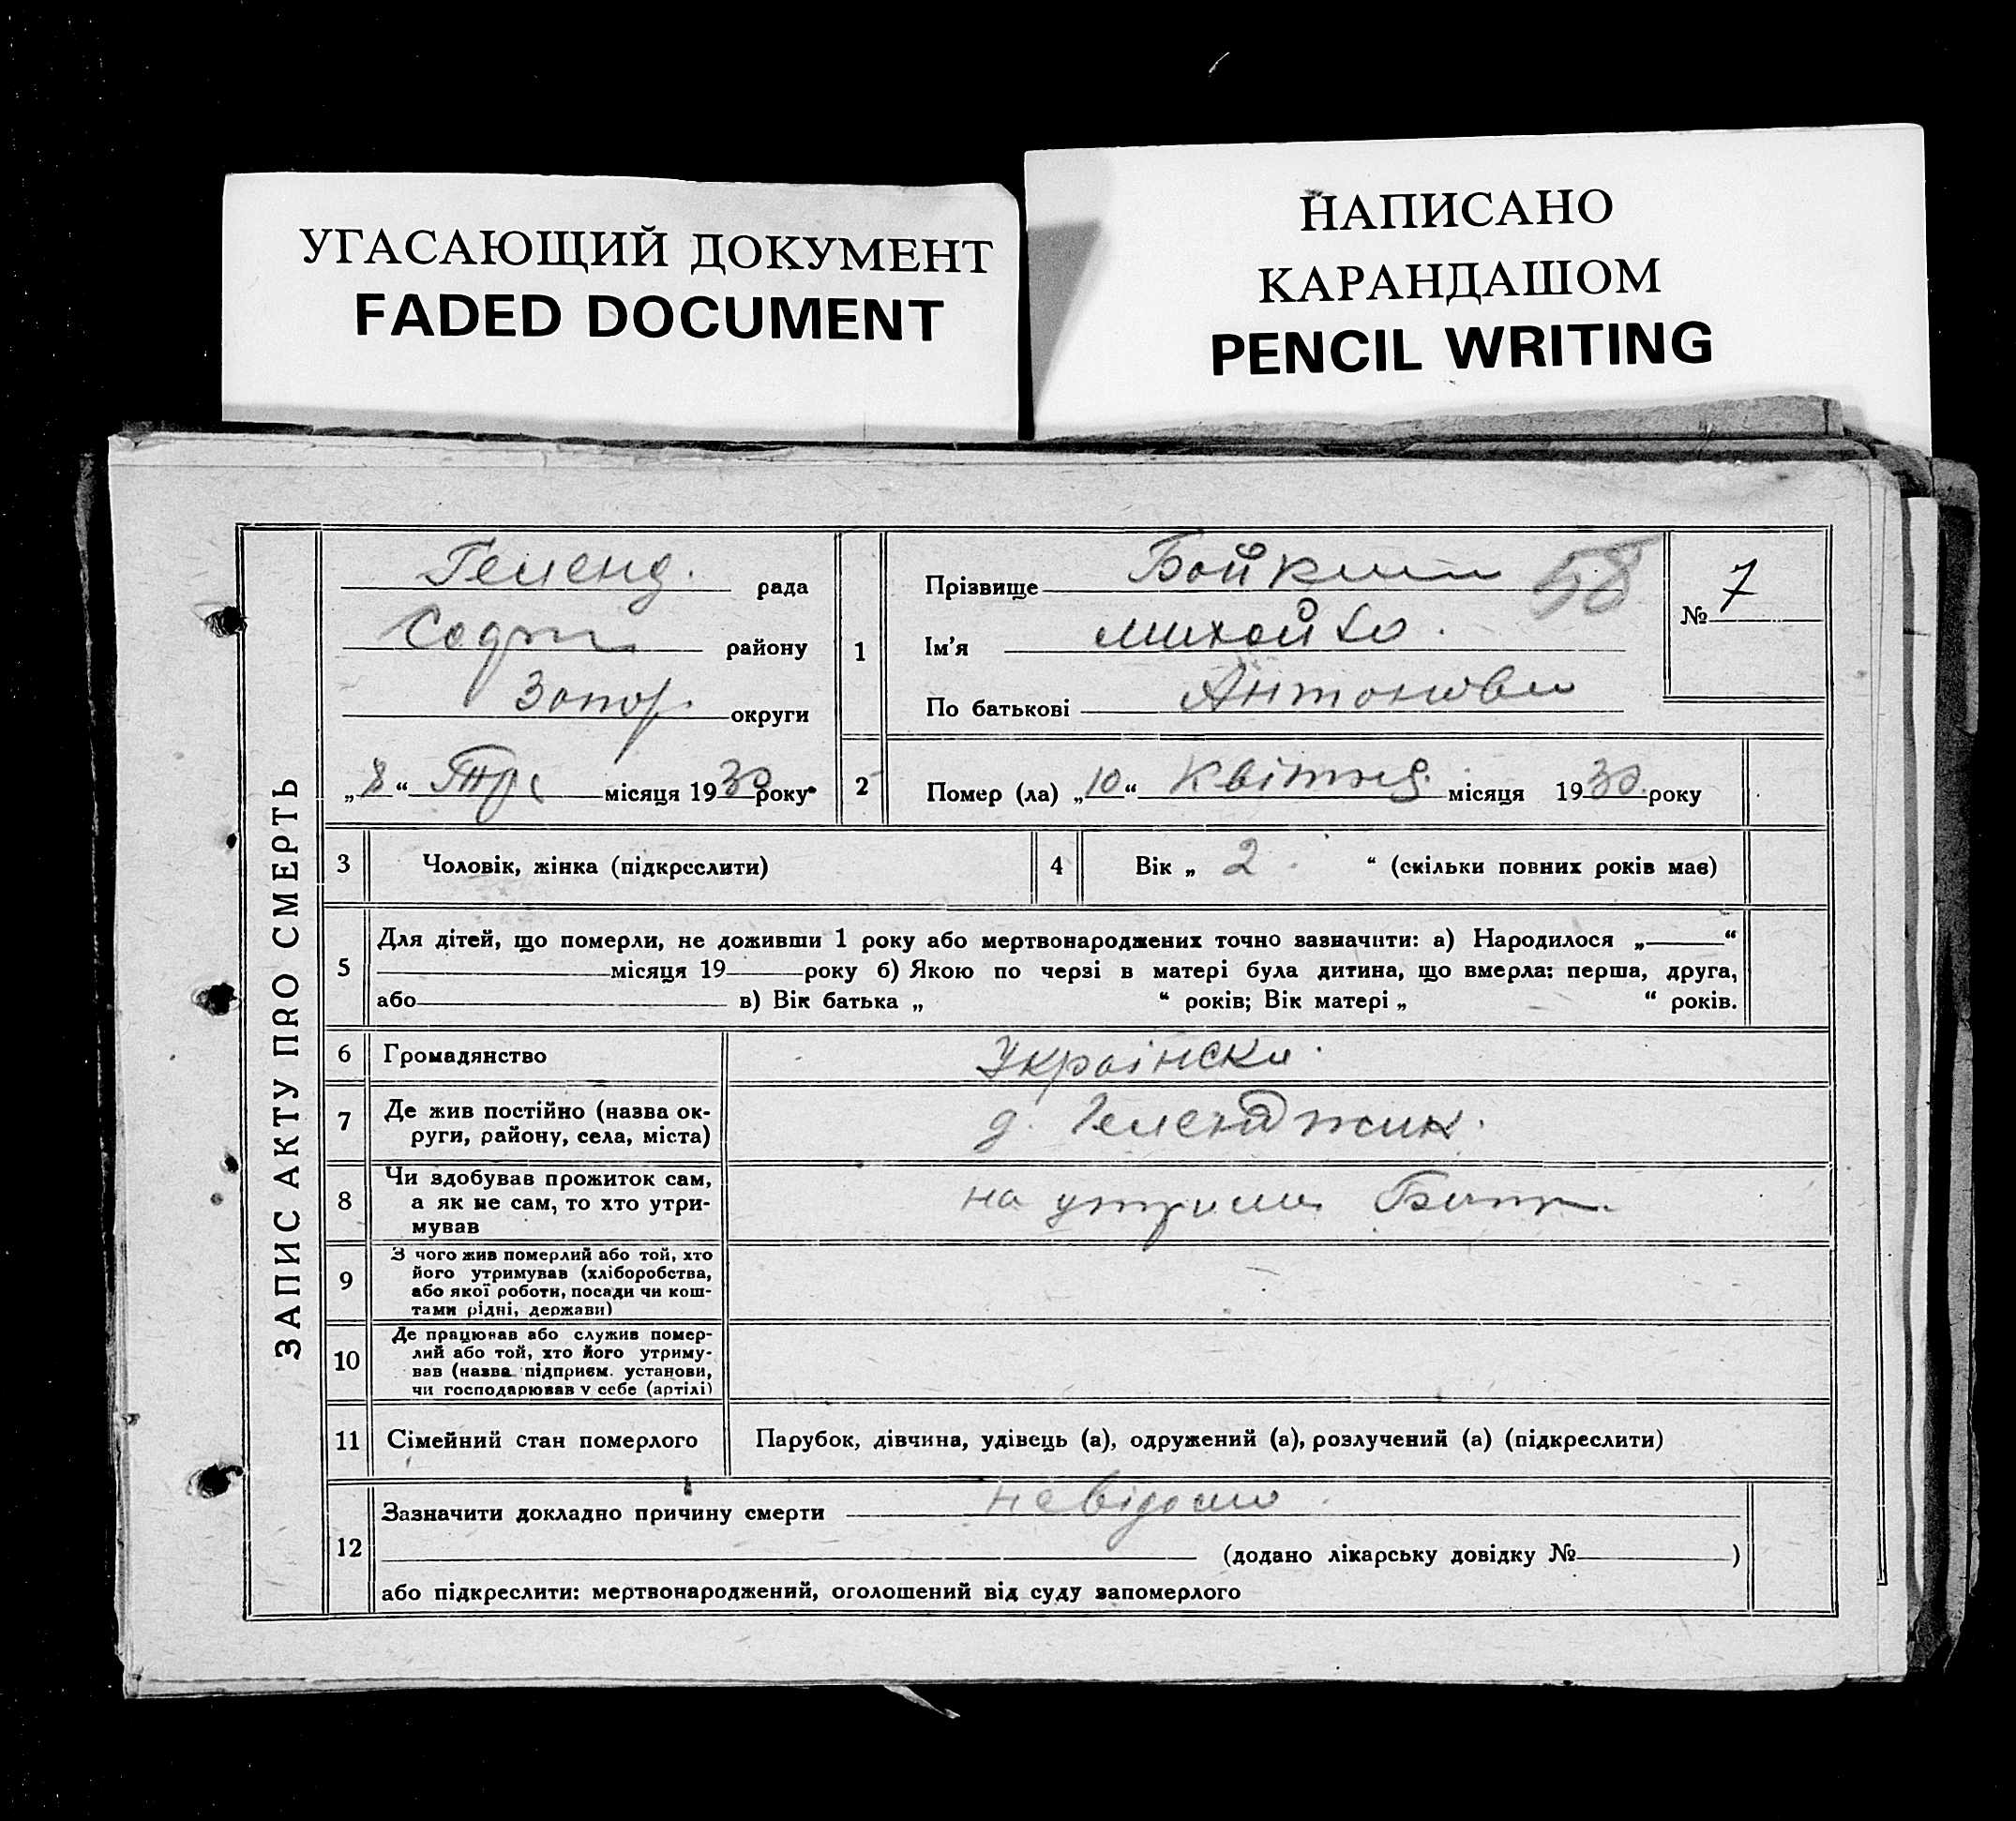 УГАСАЮЩИЙ ДОКУМЕНТ
FADED DOCUMENT
НАПИСАНО
КАРАНДАШОМ
PENCIL WRITING
ЗАПИС АКТУ ПRО СМЕРТЬ
Геленд. рада
району
Запор. округи
„8“ місяця 1930 року
1
Прізвище 58
Ім'я
По батькові Антонови
№ 7
2
Помер (ла) „10“ Квітня місяця 1930 року
3 Чоловік, жінка (підкреслити)
4 Вік „ 2 “ (скільки повних років має)
5
Для дітей, що померли, не доживши 1 року або мертвонароджених точно зазначити: а) Народилося „ “
місяця 19 року б) Якою по черзі в матері була дитина, що вмерла: перша, друга,
або в) Вік батька „ “ років; Вік матері „ “ років.
6 Громадянство Українски
7 Де жив постійно (назва ок-
руги, району, села, міста) д. Геленджик.
8 Чи здобував прожиток сам,
а як не сам, то хто утри-
мував
на утрим
9 З чого жив померлий або той, хто
його утримував (хліборобства,
або якої роботи, посади чи кош-
тами рідні, держави)
10 Де працював або служив помер-
лий або той, хто його утриму-
вав (назва підприєм. установи,
чи господарював у себе (артілі)
11 Сімейний стан померлого Парубок, дівчина, удівець (а), одружений (а), розлучений (а) (підкреслити)
12 Зазначити докладно причину смерти невідомо
(додано лікарську довідку № )
або підкреслити: мертвонароджений, оголошений від суду запомерлого